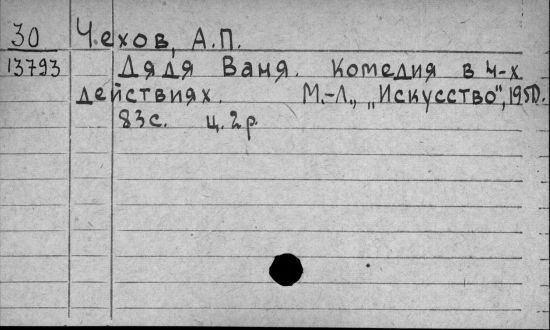 30 Чехов, А.П.
13793 Дядя Ваня. Комедия в 4-х
действиях. М.-Л., „Искусство", 1950.
83с. ц. 2р.